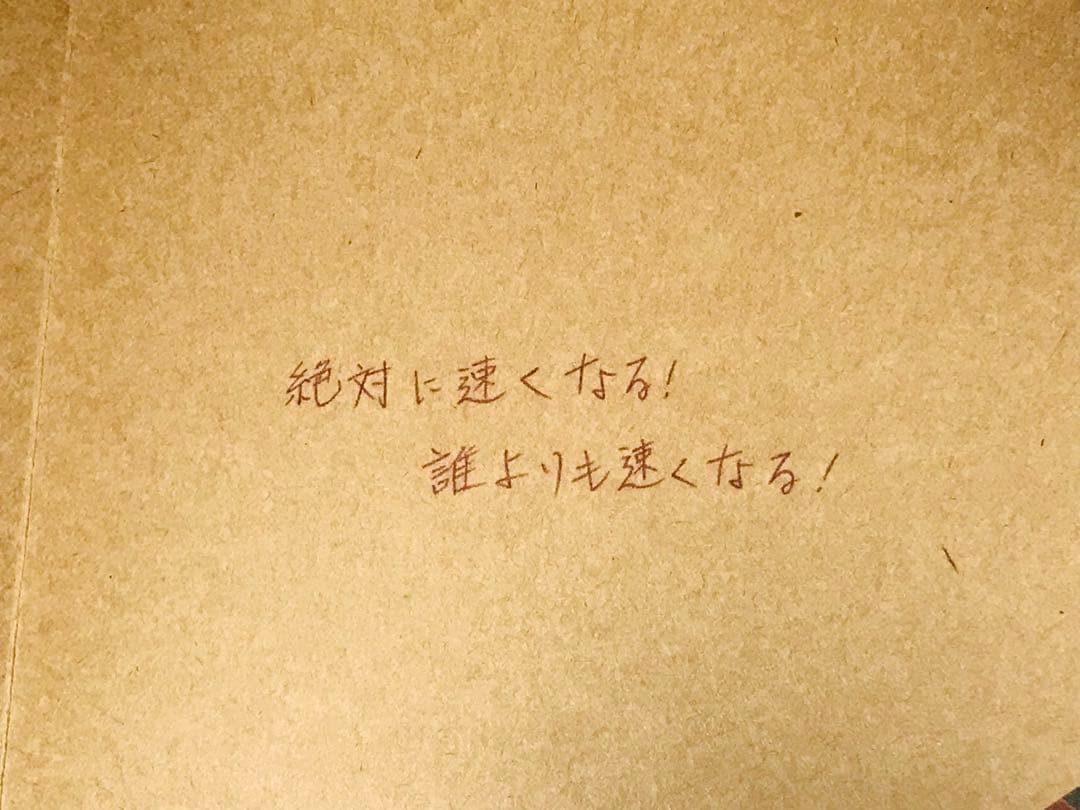 絶対に速くなる!
誰よりも速くなる!